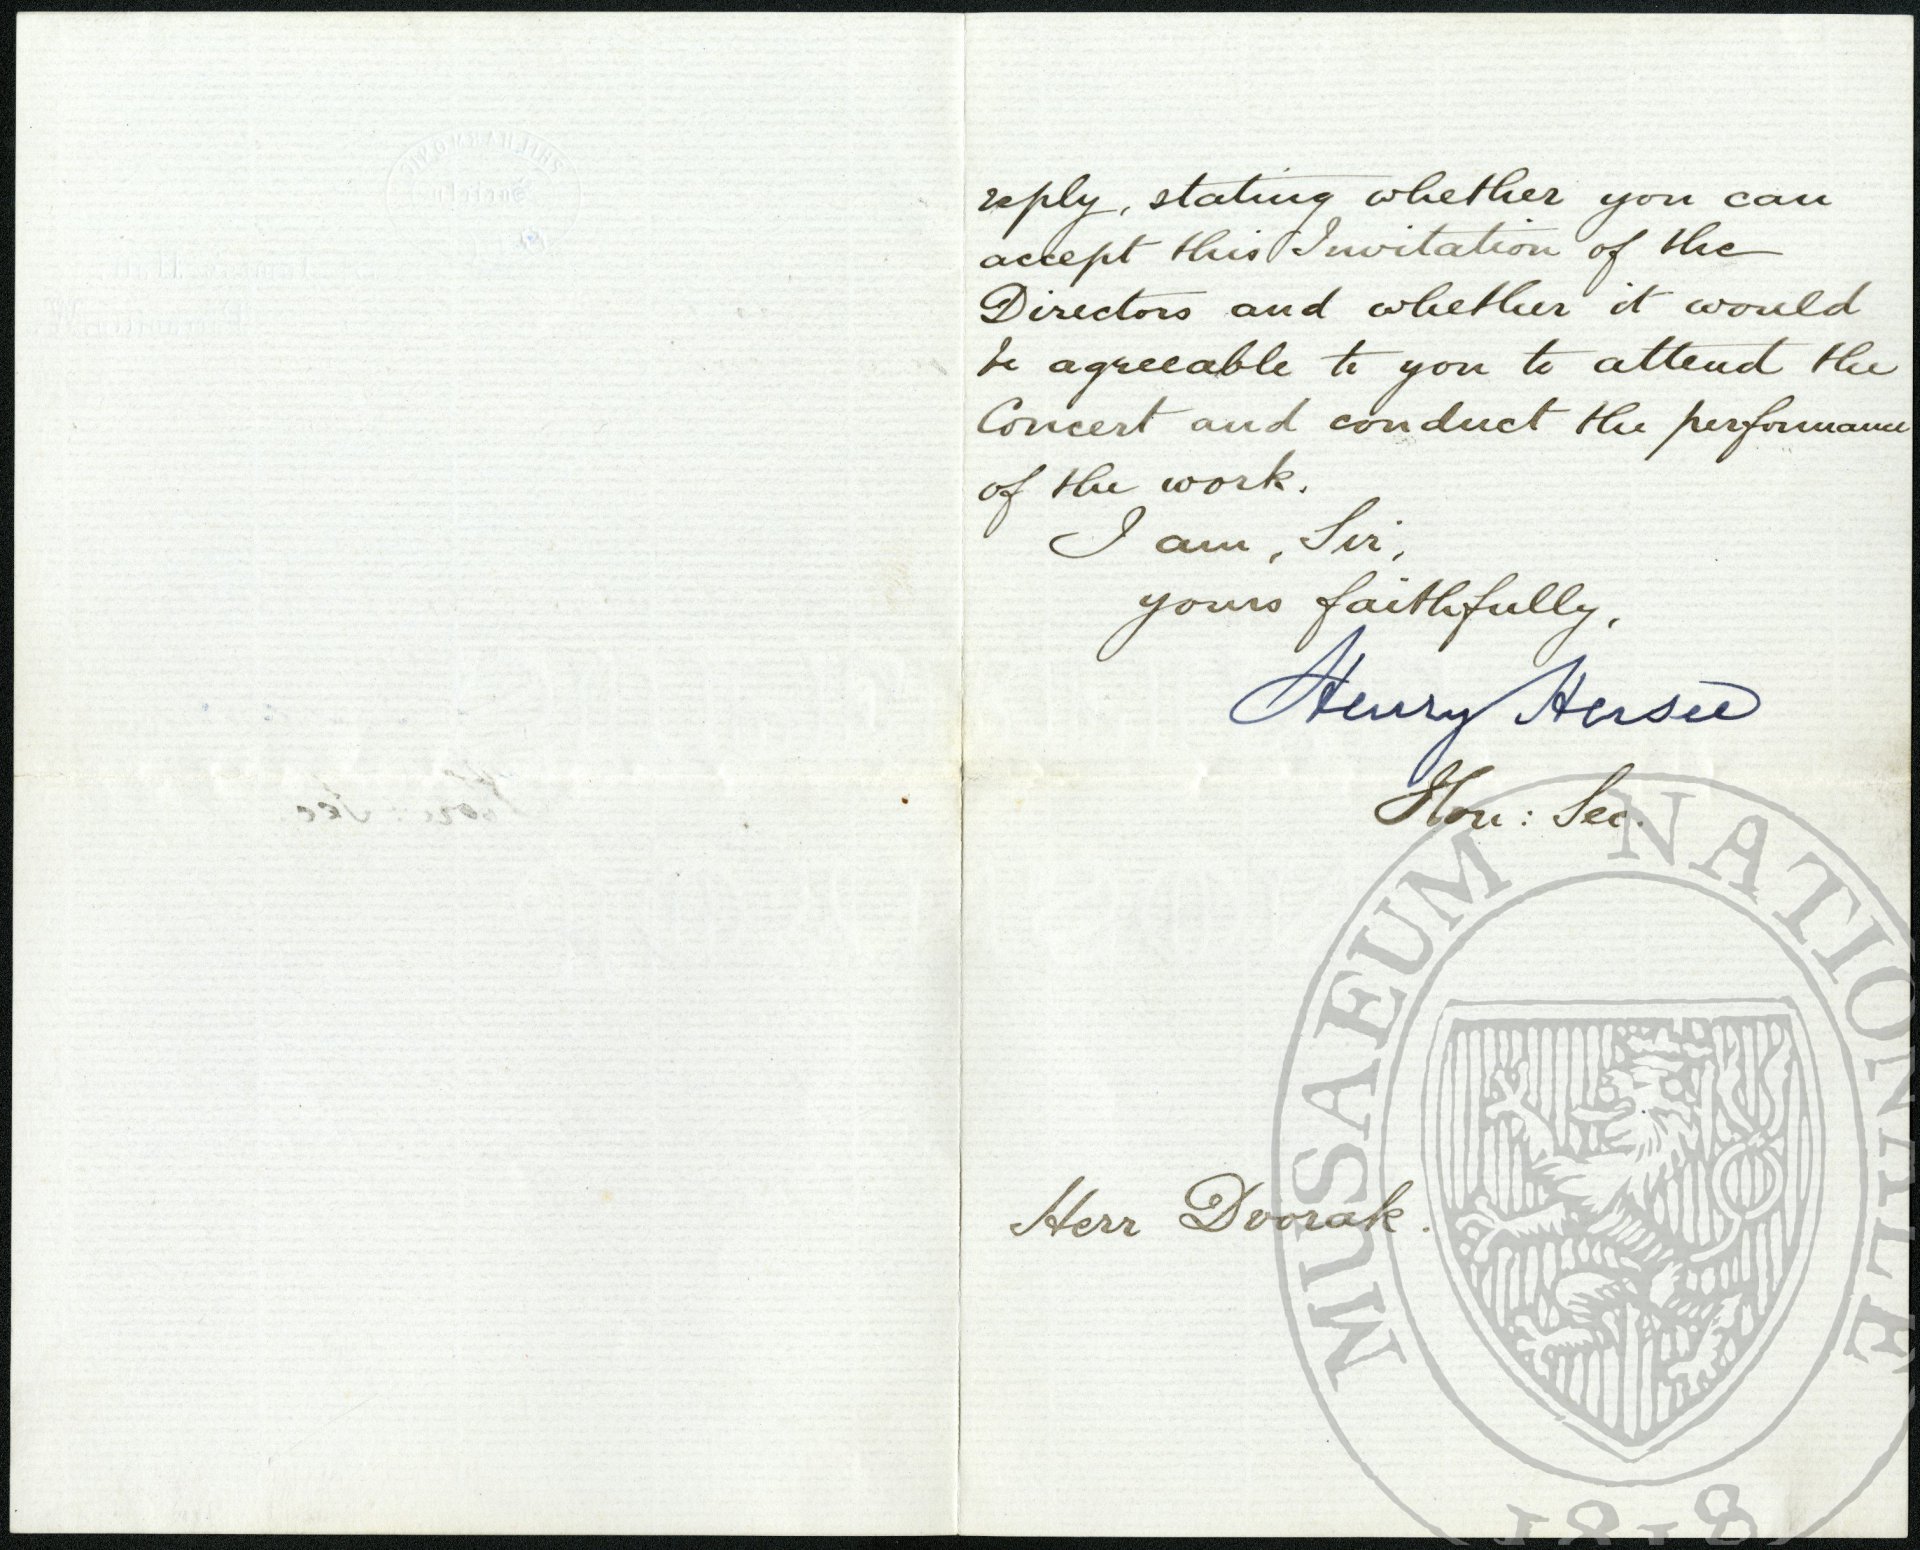 PHILHARMONIC
Society
reply, stating whether you can
accept this Invitation of the
Directors and whether it would
be agreeable to you to attend the
Concert and conduct the performance
of the work.
I am, Sir,
yours faithfully,
Henry Hersee
Hon: Sec.
Herr Dvorak.
MUSAEUM NATIONALE
1818